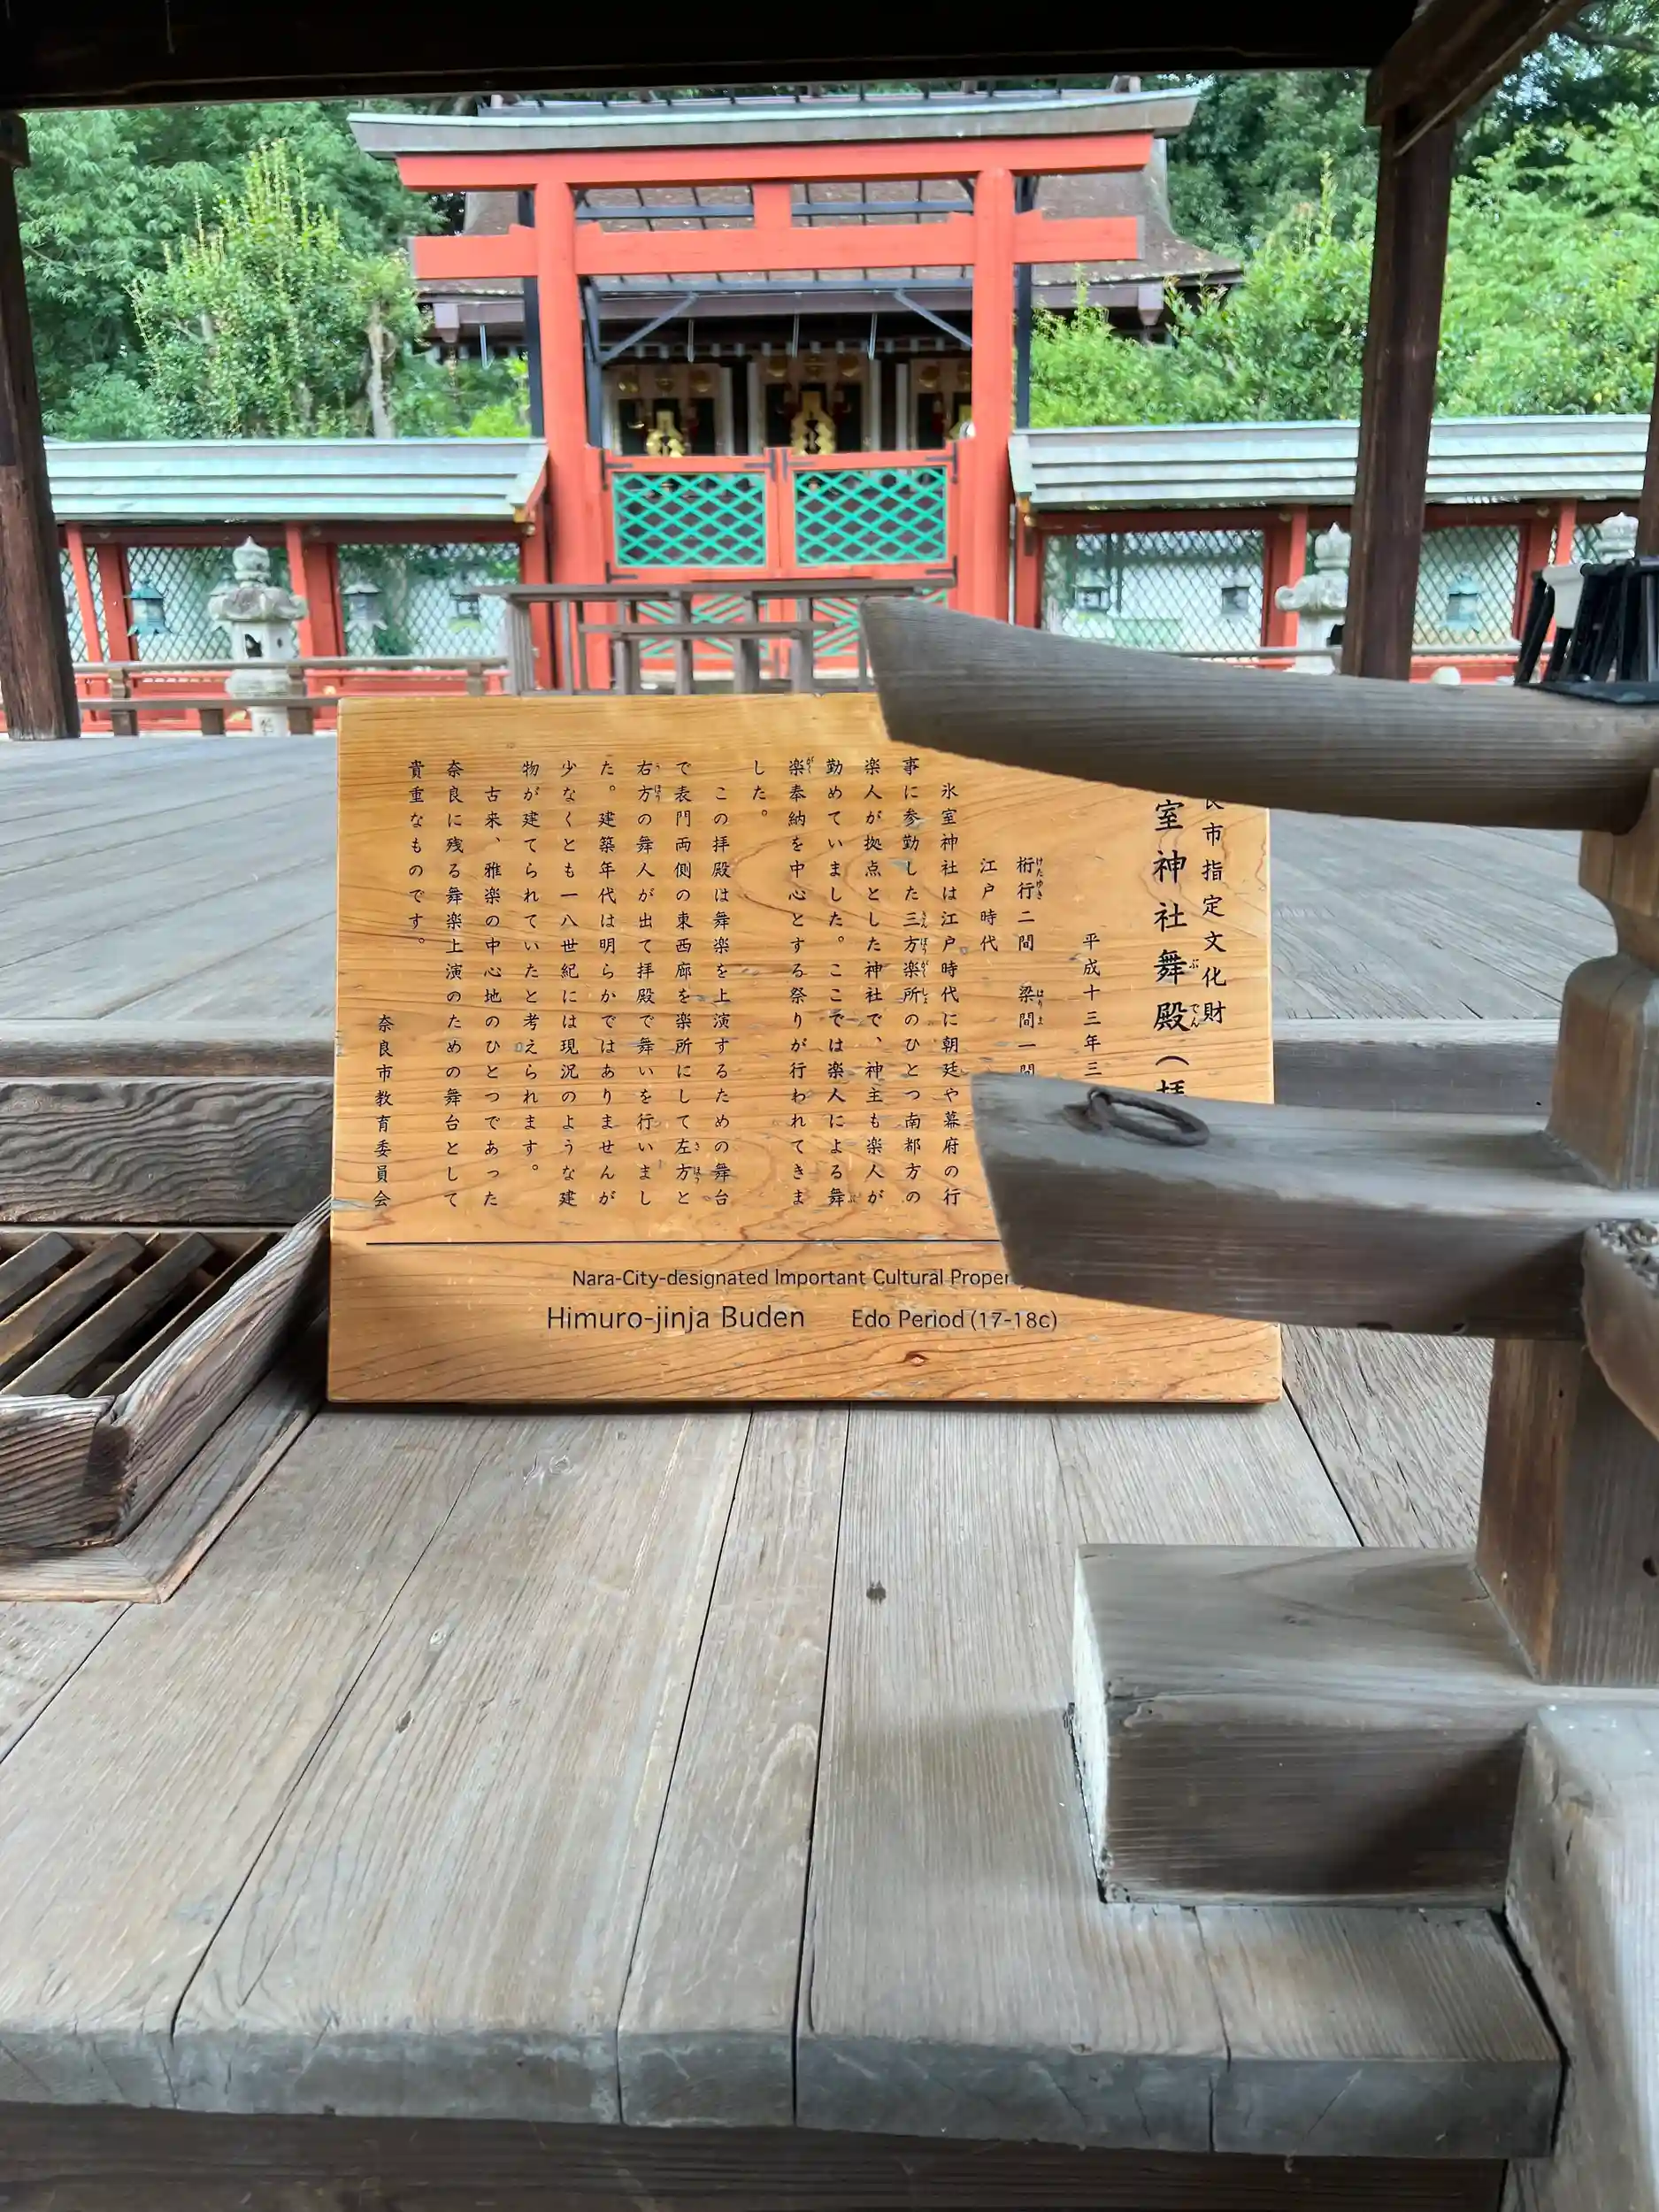 良市指定文化財
室神社舞殿（拝
平成十三年三
桁行二間　梁間一間
江戸時代
氷室神社は江戸時代に朝廷や幕府の行
事に参勤した三方楽所のひとつ南都方の
楽人が拠点とした神社で、神主も楽人が
勤めていました。ここでは楽人による舞
楽奉納を中心とする祭りが行われてきま
した。
この拝殿は舞楽を上演するための舞台
で表門両側の東西廊を楽所にして左方と
右方の舞人が出て拝殿で舞いを行いまし
た。建築年代は明らかではありませんが
少なくとも一八世紀には現況のような建
物が建てられていたと考えられます。
古来、雅楽の中心地のひとつであった
奈良に残る舞楽上演のための舞台として
貴重なものです。
奈良市教育委員会
Nara-City-designated Important Cultural Proper
Himuro-jinja Buden Edo Period (17-18c)